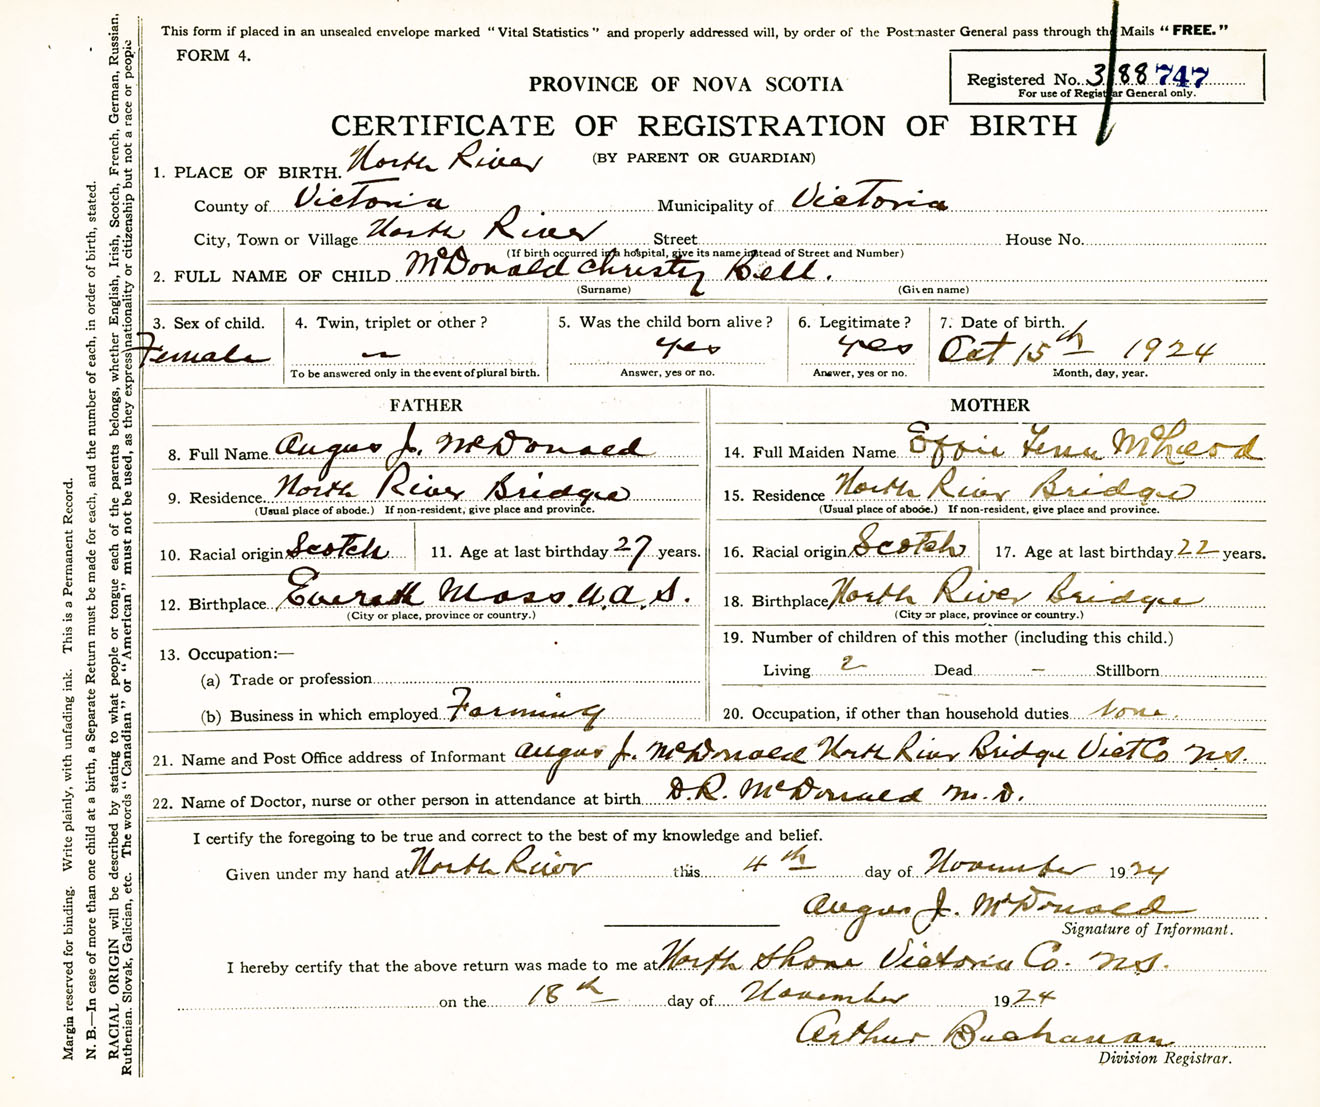 This form if placed in an unsealed envelope marked "Vital Statistics" and properly addressed will, by order of the Postmaster General pass through the Mails "FREE."
FORM 4.
Registered No. 3188747
For use of Registrar General only.
PROVINCE OF NOVA SCOTIA
CERTIFICATE OF REGISTRATION OF BIRTH
(BY PARENT OR GUARDIAN)
1. PLACE OF BIRTH. North River
County of Victoria Municipality of Victoria
City, Town or Village North River Street House No.
(If birth occurred in a hospital, give its name instead of Street and Number)
2. FULL NAME OF CHILD McDonald Christy Bell.
(Surname) (Given name)
3. Sex of child. 4. Twin, triplet or other? 5. Was the child born alive? 6. Legitimate? 7. Date of birth.
Female — yes yes Oct 15th 1924
To be answered only in the event of plural birth. Answer, yes or no. Answer, yes or no. Month, day, year.
FATHER
8. Full Name Angus J. McDonald
9. Residence North River Bridge
(Usual place of abode.) If non-resident, give place and province.
10. Racial origin Scotch 11. Age at last birthday 27 years.
12. Birthplace Everett Mass. U.A.S.
(City or place, province or country.)
13. Occupation:—
(a) Trade or profession
(b) Business in which employed Farming
MOTHER
14. Full Maiden Name Effie McLeod
15. Residence North River Bridge
(Usual place of abode.) If non-resident, give place and province.
16. Racial origin Scotch 17. Age at last birthday 22 years.
18. Birthplace North River Bridge
(City or place, province or country.)
19. Number of children of this mother (including this child.)
Living 2 Dead — Stillborn
20. Occupation, if other than household duties None.
21. Name and Post Office address of Informant Angus J. McDonald North River Bridge Vict Co N.S.
22. Name of Doctor, nurse or other person in attendance at birth D.R. McDonald M.D.
I certify the foregoing to be true and correct to the best of my knowledge and belief.
Given under my hand at North River this 4th day of November 1924
Angus J. McDonald
Signature of Informant.
I hereby certify that the above return was made to me at North Shore Victoria Co. N.S.
on the 18th day of November 1924
Arthur Buchanan
Division Registrar.
Margin reserved for binding. Write plainly, with unfading ink. This is a Permanent Record.
N. B.—In case of more than one child at a birth, a Separate Return must be made for each, and the number of each, in order of birth, stated.
RACIAL ORIGIN will be described by stating to what people or tongue each of the parents belongs, whether English, Irish, Scotch, French, German, Russian,
Ruthenian, Slovak, Galician, etc. The words "Canadian" or "American" must not be used, as they express nationality or citizenship but not a race or people